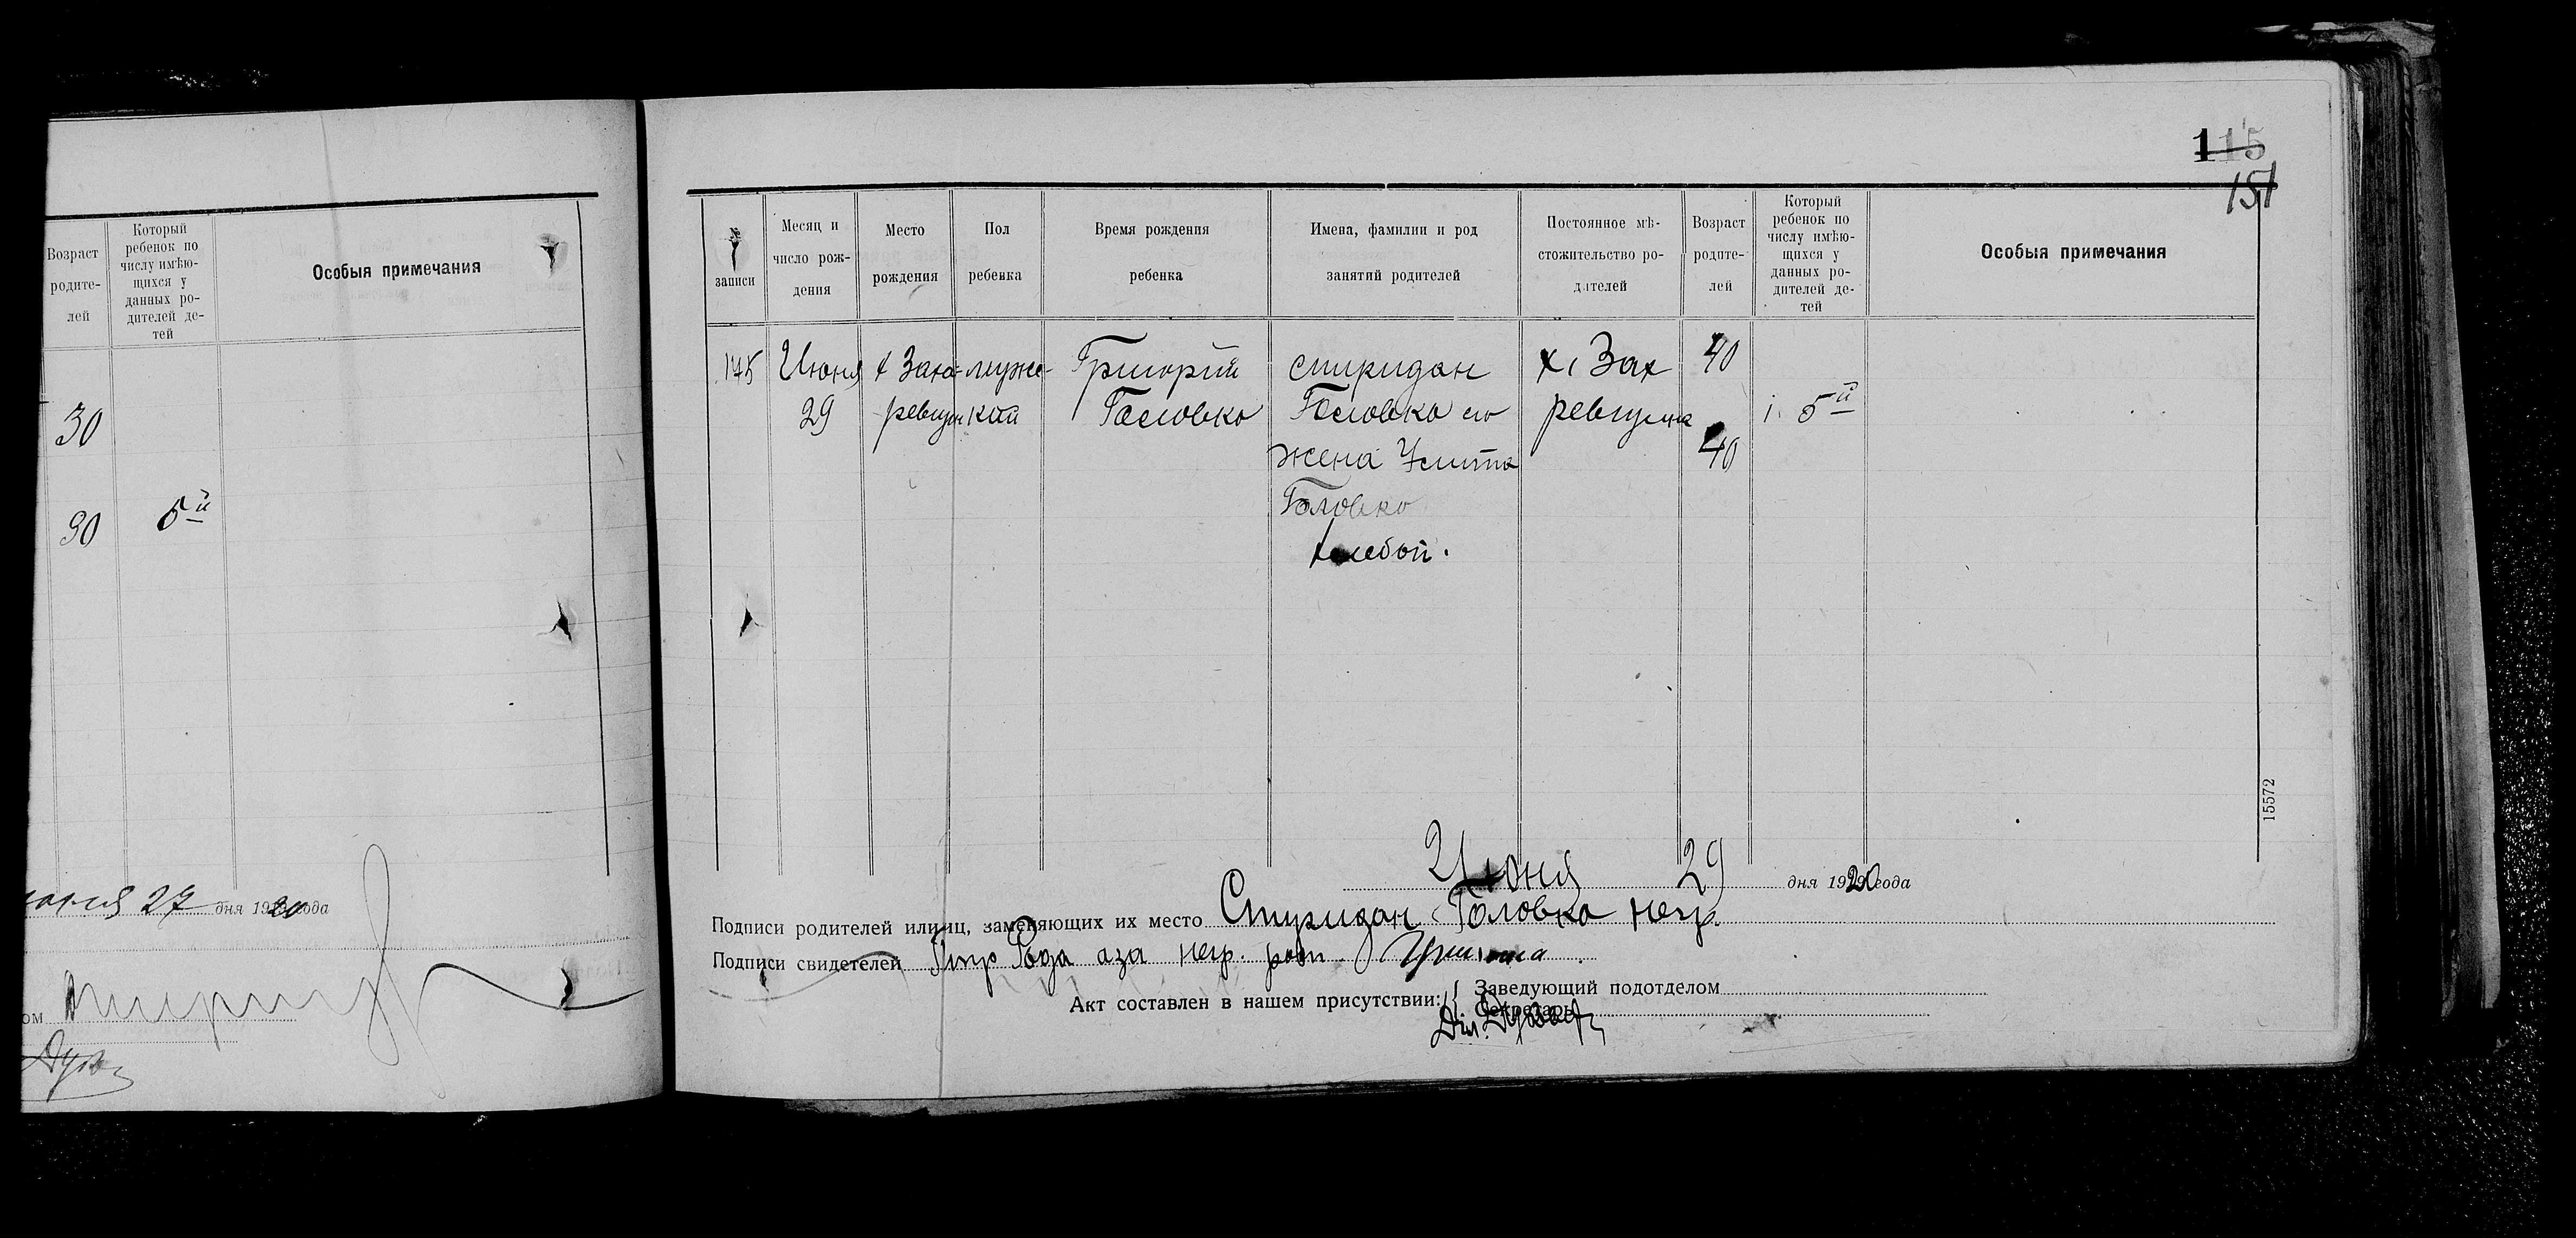 115
151
Возраст
родите-
лей
Который
ребенок по
числу имѣю-
щихся у
данных ро-
дителей де-
тей
Особыя примечания
30
30
5й
27 дня 1920 года
записи
Месяц и
число рож-
дения
Место
рождения
Пол
ребенка
Время рождения
ребенка
Имена, фамилии и род
занятий родителей
Постоянное мѣ-
стожительство ро-
дителей
Возраст
родите-
лей
Который
ребенок по
числу имѣю-
щихся у
данных ро-
дителей де-
тей
Особыя примечания
175
Июня
29
х Заха-
ревщин
муже-
кий
Григорий
Головко
спиридан
Головко его
жена Улита
Головко
хлебоп.
х. Зах
ревщина
40
40
5й
15572
Июня 29 дня 1920 года
Подписи родителей или лиц, заменяющих их место Спиридан Головко негр.
Подписи свидетелей негр.
Акт составлен в нашем присутствии: Заведующий подотделом
Секретарь